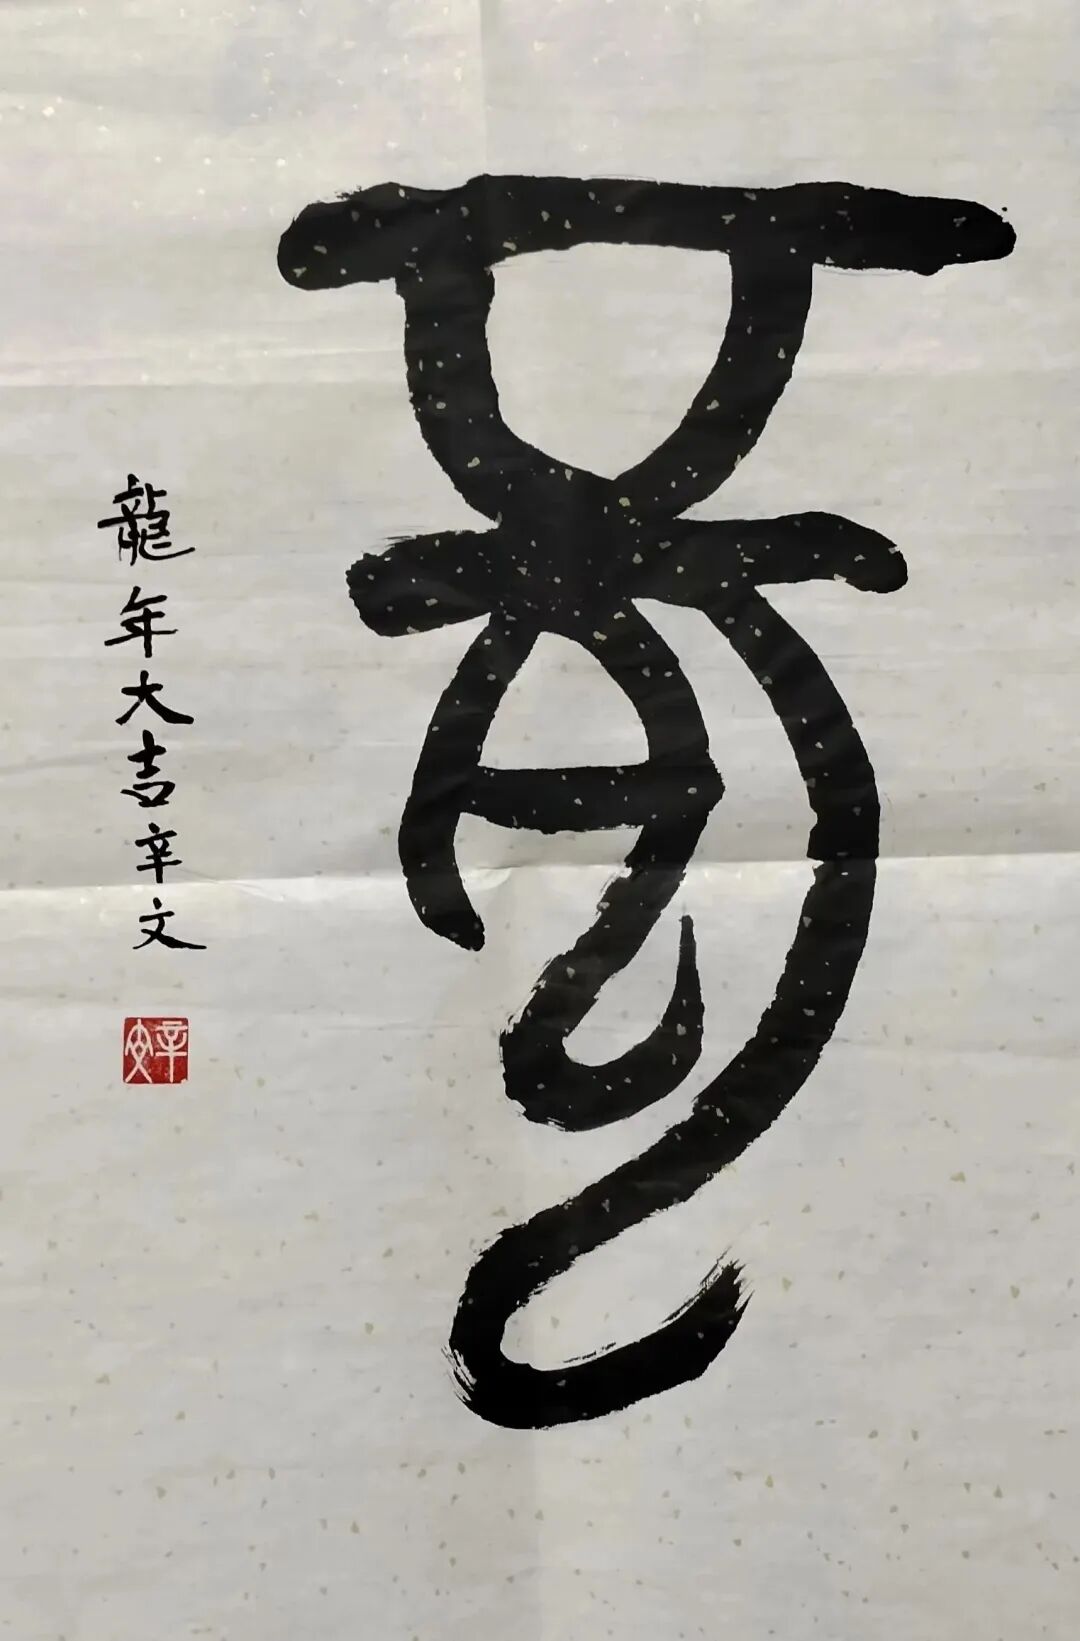 龍
龍年大吉辛文
辛文